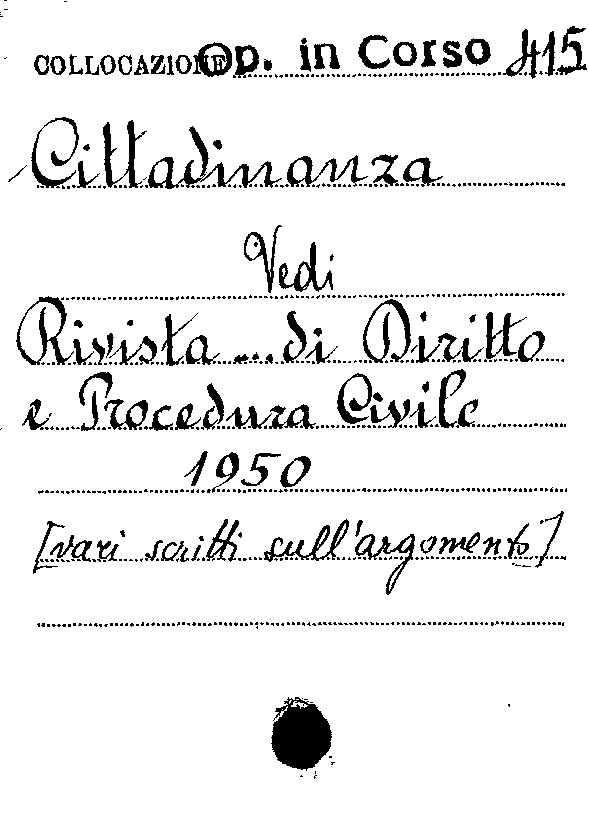 COLLOCAZIONE Op. in Corso 415
Cittadinanza
Vedi
Rivista ... di Diritto
e Procedura Civile
1950
[vari scritti sull'argomento]